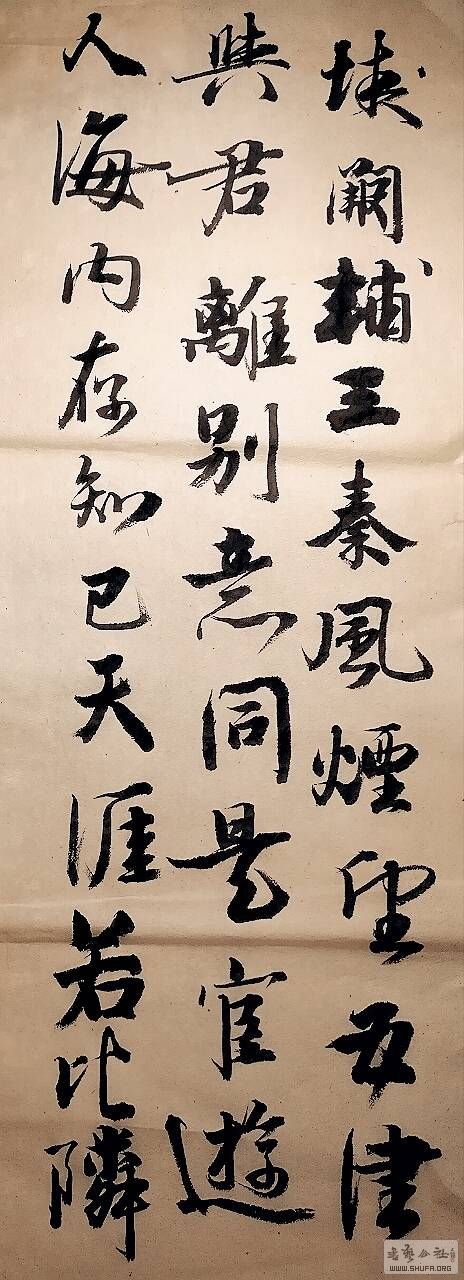 城闕輔三秦風煙望五津
與君離別意同是宦遊
人海内存知己天涯若比隣
書藝公社
WWW.SHUFA.ORG